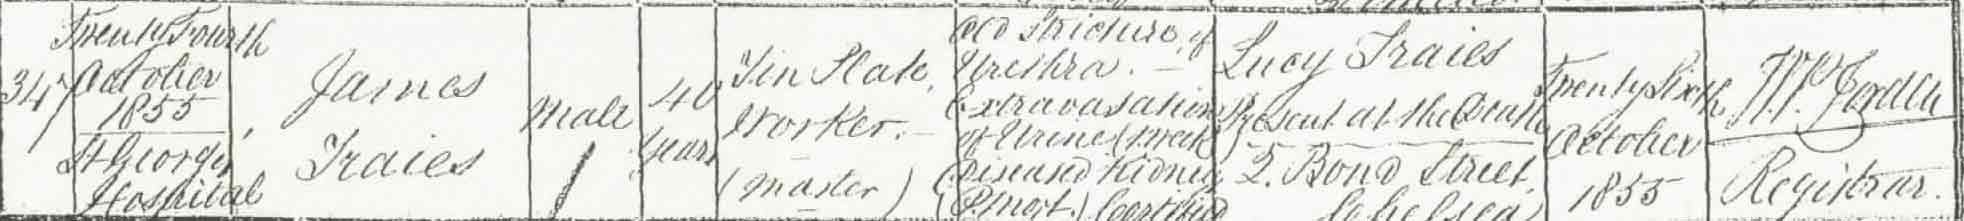 347
Twenty Fourth
October
1855
St Georges
Hospital
James
Traies
Male
40
Years
Tin Plate
Worker.
(Master)
Old Stricture of
Urethra.
Extravasation
of Urine 1 week
Diseased Kidney
(P. Mort.) Certified
Lucy Traies
Present at the Death
2. Bond Street
Chelsea
Twenty Sixth
October
1855
Registrar.